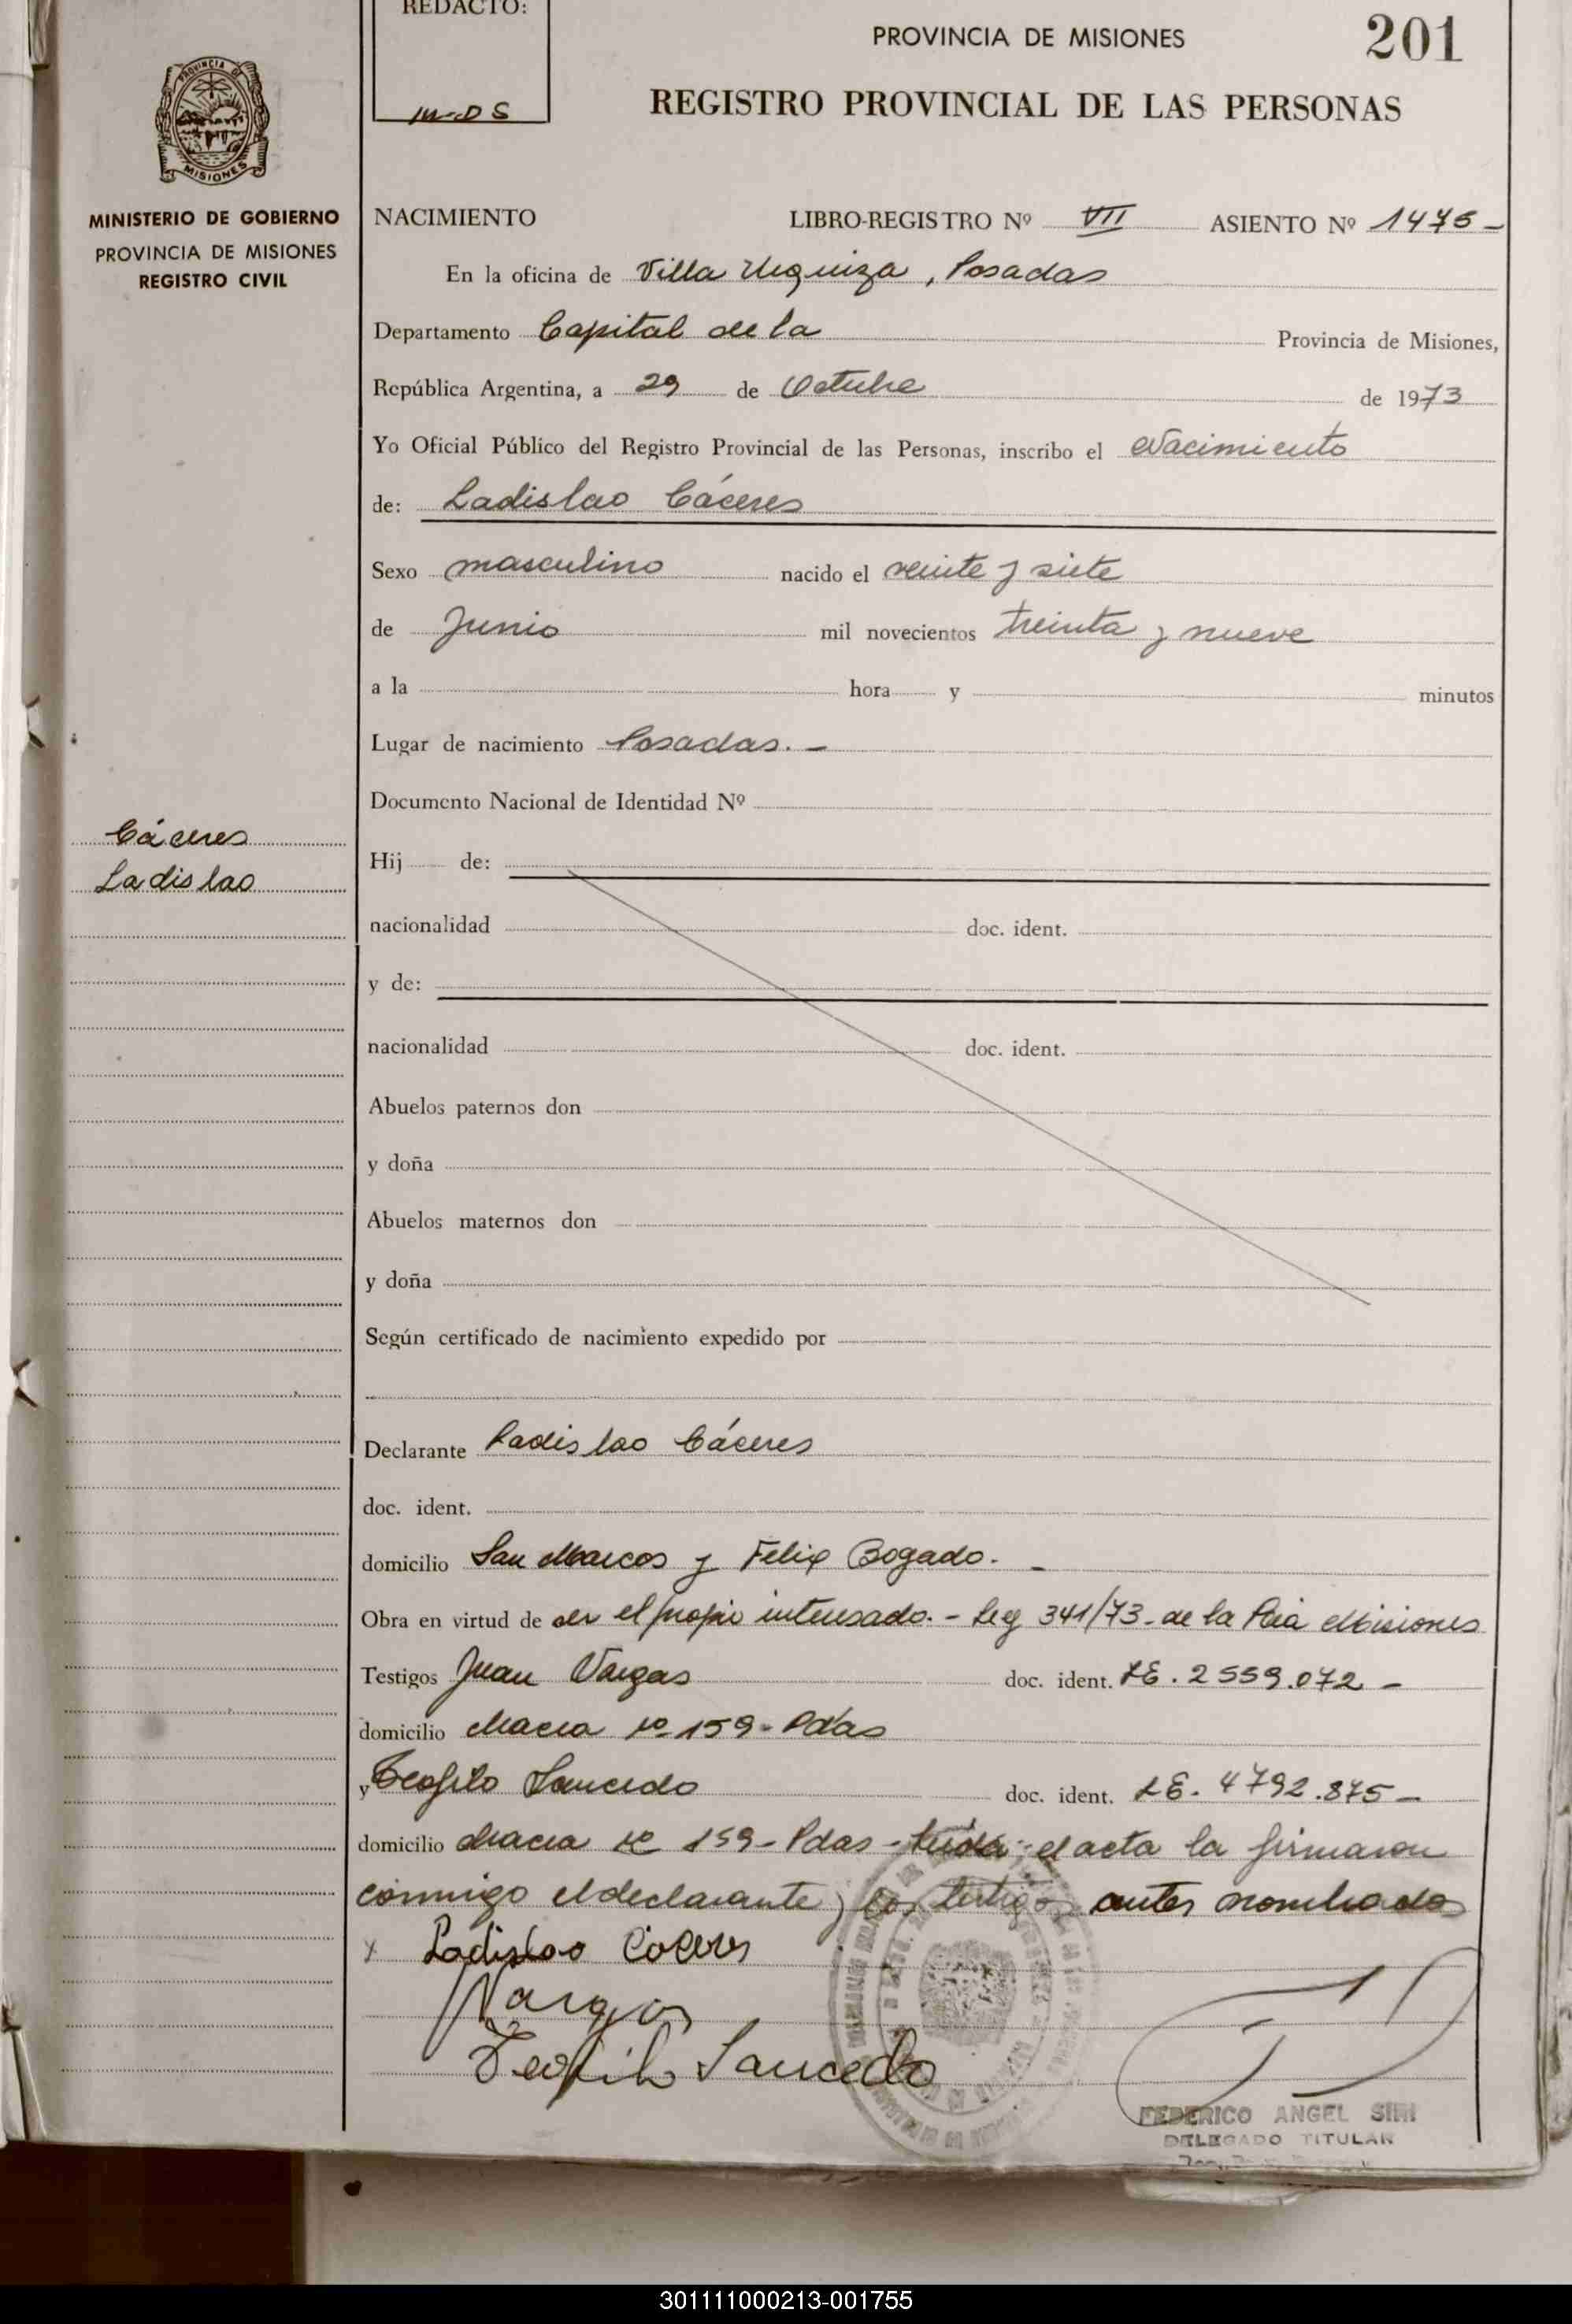 REDACTO:
PROVINCIA DE MISIONES
201
REGISTRO PROVINCIAL DE LAS PERSONAS
PROVINCIA DE
MISIONES
MINISTERIO DE GOBIERNO
PROVINCIA DE MISIONES
REGISTRO CIVIL
NACIMIENTO LIBRO-REGISTRO Nº VII ASIENTO Nº 1475 -
En la oficina de Villa Urquiza, Posadas
Departamento Capital de la Provincia de Misiones,
República Argentina, a 29 de Octubre de 1973
Yo Oficial Público del Registro Provincial de las Personas, inscribo el Nacimiento
de: Ladislao Cáceres
Sexo masculino nacido el veinte y siete
de Junio mil novecientos treinta y nueve
a la hora y minutos
Lugar de nacimiento Posadas. -
Documento Nacional de Identidad Nº
Cáceres
Ladislao
Hij de:
nacionalidad doc. ident.
y de:
nacionalidad doc. ident.
Abuelos paternos don
y doña
Abuelos maternos don
y doña
Según certificado de nacimiento expedido por
Declarante Ladislao Cáceres
doc. ident.
domicilio San Marcos y Felix Bogado. -
Obra en virtud de ser el propio interesado. - Ley 341/73 - de la Pcia Misiones
Testigos Juan Vargas doc. ident. LE. 2559.072 -
domicilio Nº 159 - Pdas
y Teofilo Saucedo doc. ident. LE. 4792.875 -
domicilio Nº 159 - Pdas - Leída el acta la firmaron
conmigo el declarante y los testigos antes nombrados
x Ladislao Cáceres
Vargas
Teofilo Saucedo
FEDERICO ANGEL SIRI
DELEGADO TITULAR
301111000213-001755